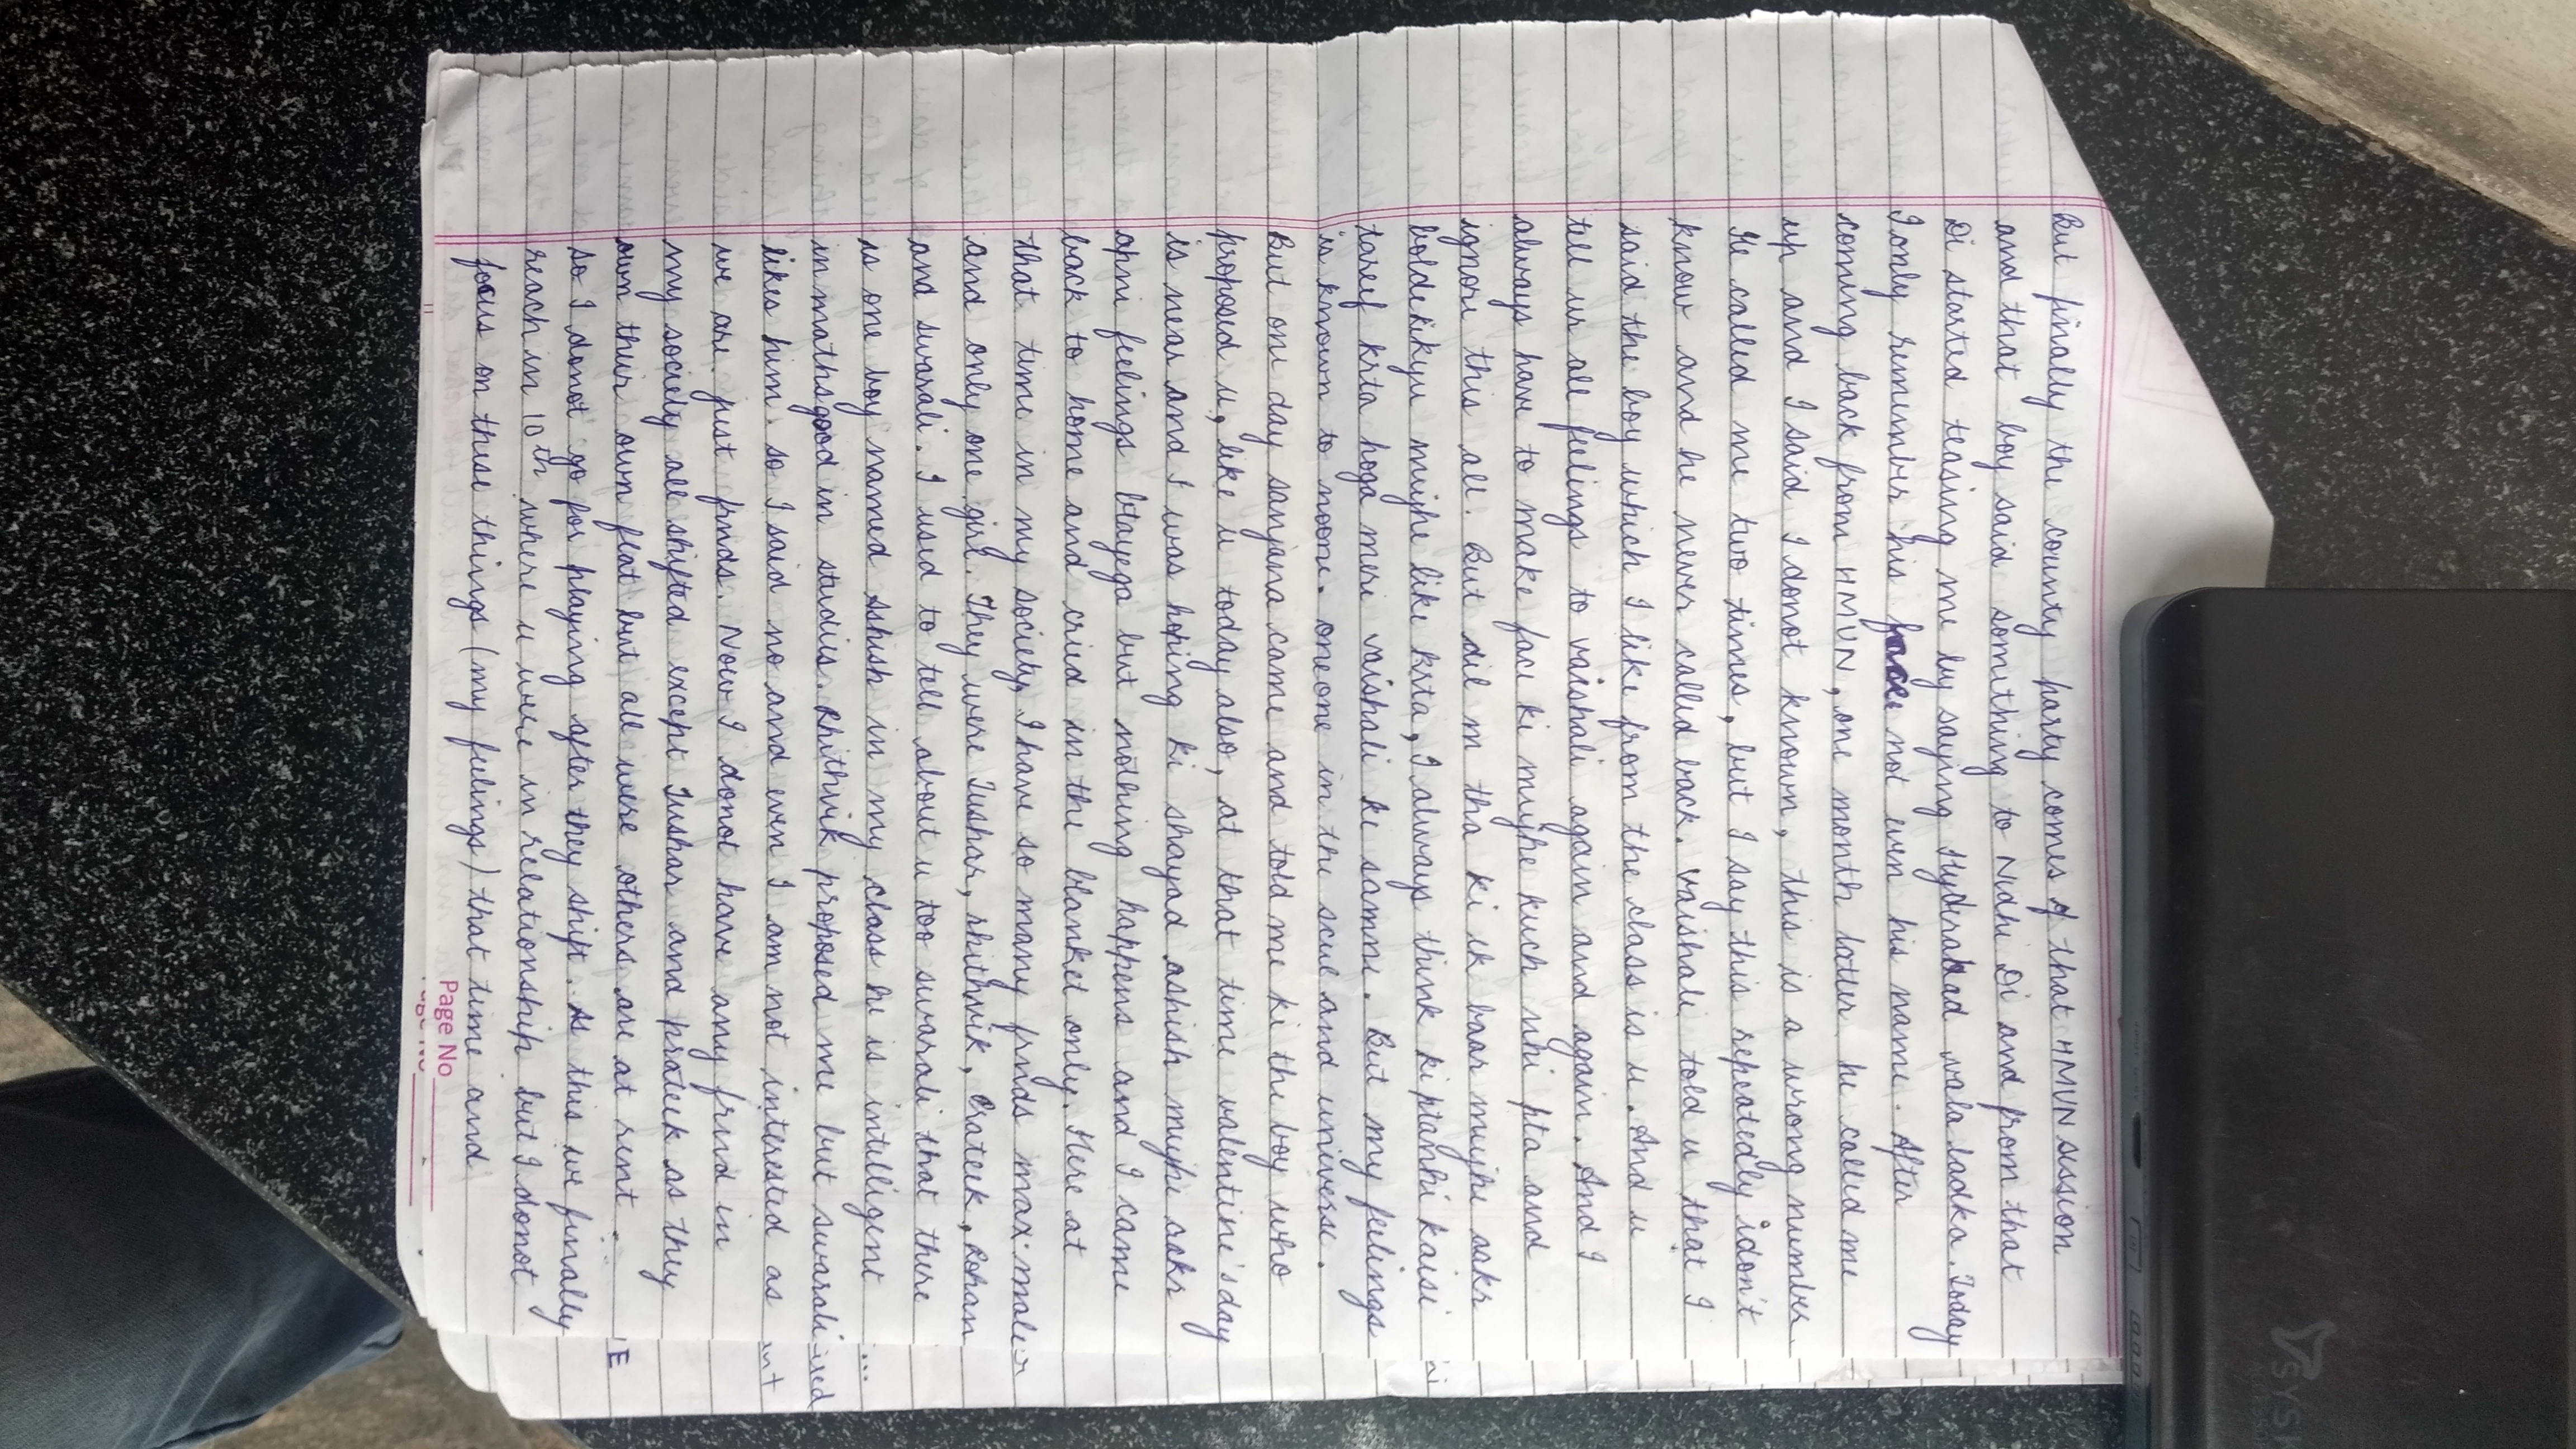 But finally the county party comes of that HMUN session
and that boy said something to Nidhi Di and from that
Di started teasing me by saying Hyderabad wala ladka. Today
I only remember his face not even his name. After
coming back from HMUN, one month latter he called me
up and I said I donot known, this is a wrong number.
He called me two times, but I say this repeatedly idon't
know and he never called back. Vaishali told u that I
said the boy which I like from the class is u. And u
tell ur all feelings to vaishali again and again. And I
always have to make face ki mujhe kuch nhi pta and
ignore this all. But dil m tha ki ek baar mujhe askr
boldekikyu mujhe like krta, I always think ki ptanhi kaisi
tareef krta hoga meri vaishali ke samne. But my feelings
is known to noone. oneone in the scul and universe.
But one day sanjana came and told me ki the boy who
proposed u, like u today also, at that time valentine's day
is near and I was hoping ki shayad ashish mujhe aakr
apni feelings btayega but nothing happens and I came
back to home and cried in the blanket only. Here at
that time in my society, I have so many frnds max. male
and only one girl. They were Tushar, rhithvik, Prateek, Rohan
and swarali. I used to tell about u too swarali that there
is one boy named sshish in my class he is intelligent
in maths good in studies. Rhithvik proposed me but swarali
likes him. so I said no and even I am not interested as
we are just frnds. Now I donot have any frnd in
my society all shifted except Tushar and prateek as they
own their own flat but all were others are at rent.
so I donot go for playing after they shift. As this we finally
reach in 10th where u were in relationship but I donot
focus on these things (my feelings) that time and
Page No
E
SYS